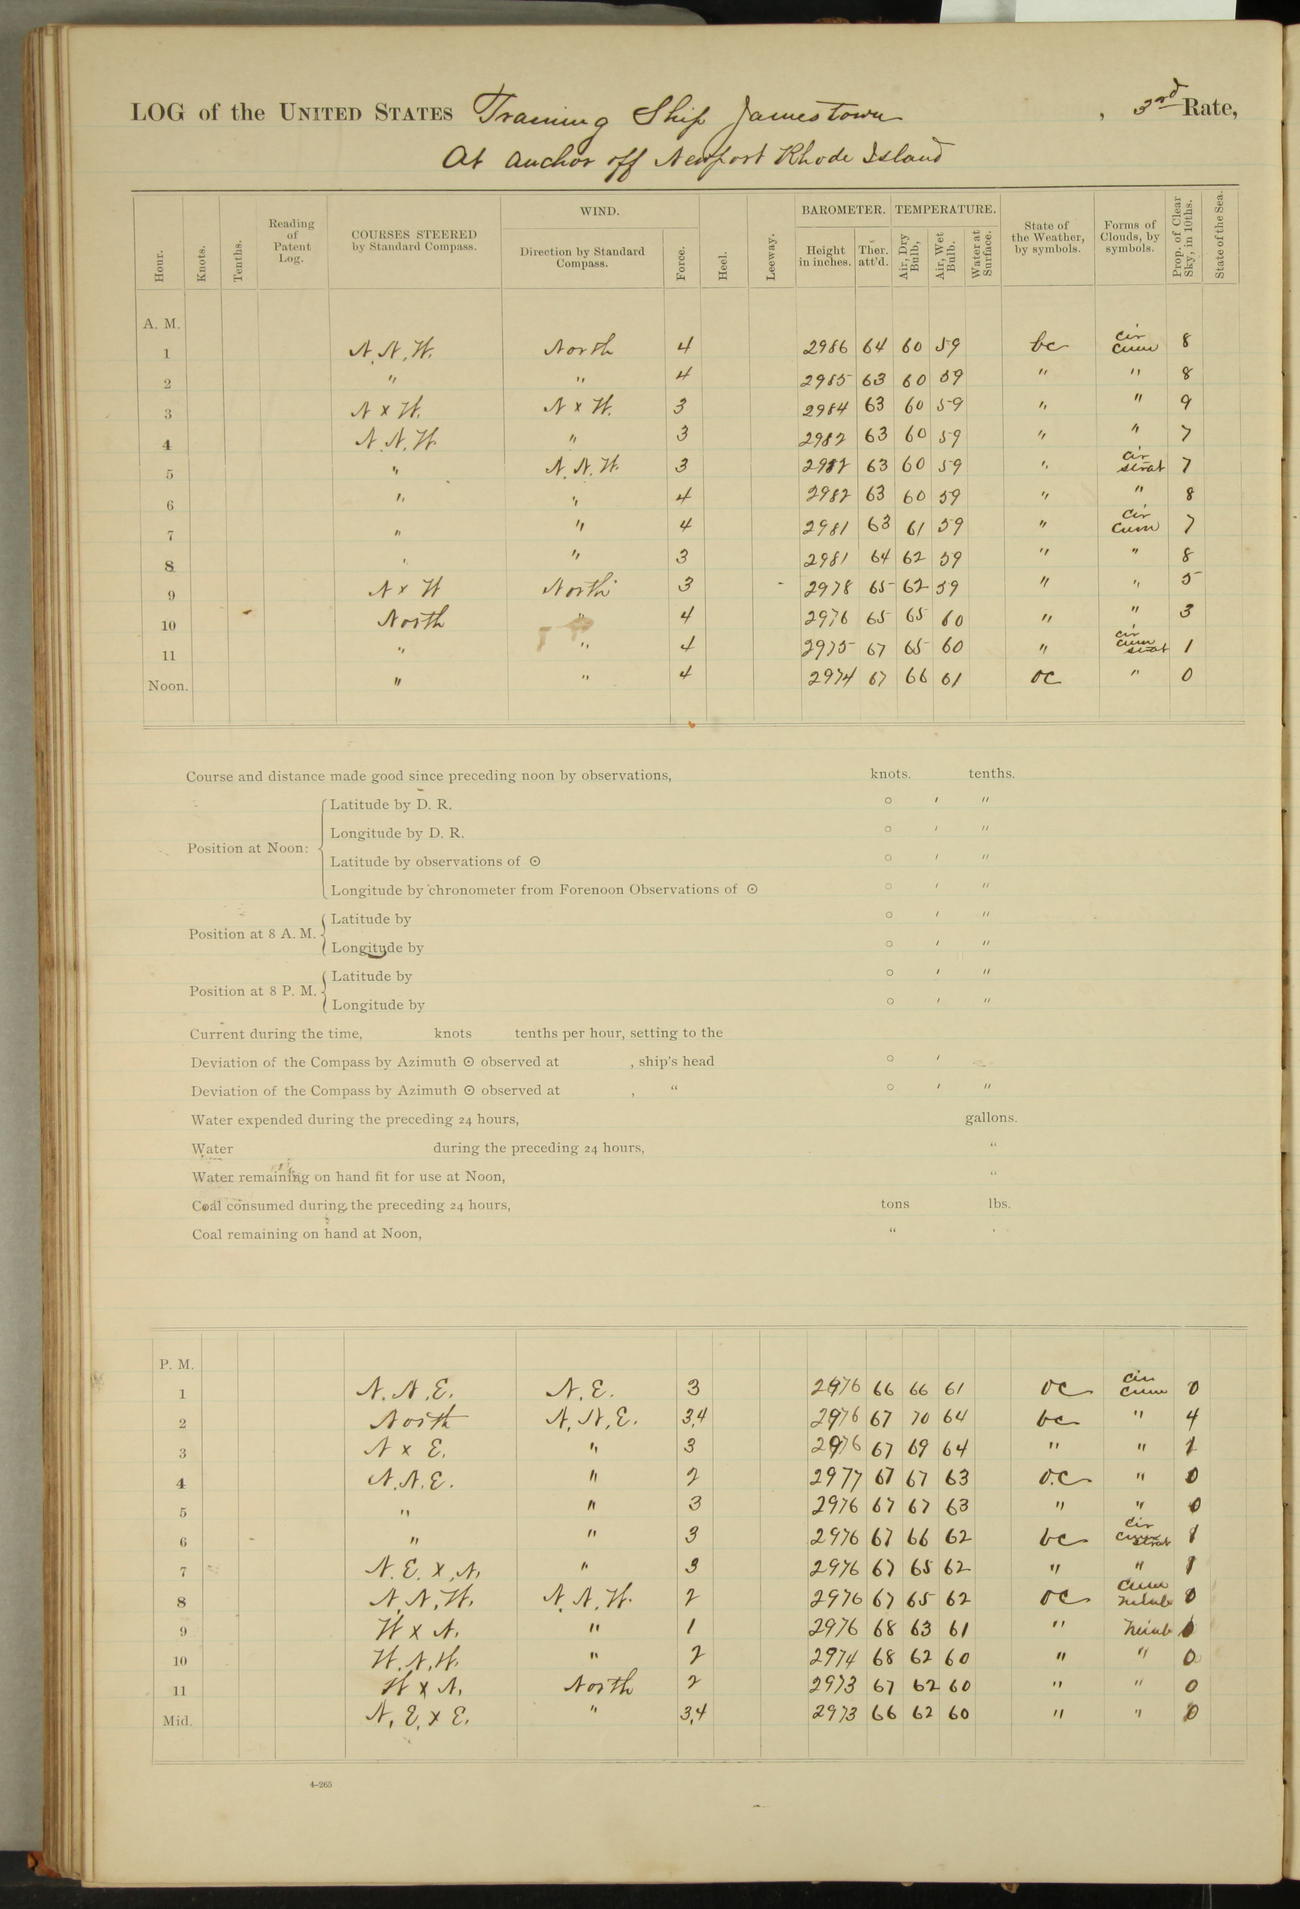 LOG of the UNITED STATES Training Ship Jamestown, 3rd Rate,
At anchor off Newport Rhode Island
WIND. BAROMETER. TEMPERATURE.
Hour. Knots. Tenths. Reading of Patent Log. COURSES STEERED by Standard Compass. Direction by Standard Compass. Force. Heel. Leeway. Height in inches. Ther. att'd. Air, Dry Bulb, Air, Wet Bulb. Water at Surface. State of the Weather, by symbols. Forms of Clouds, by symbols. Prop. of Clear Sky, in 10ths. State of the Sea.
A. M.
1 N.N.W. North 4 2986 64 60 59 bc cir cum 8
2 " " 4 2985 63 60 59 " " 8
3 N x W. N x W. 3 2984 63 60 59 " " 9
4 N.N.W. " 3 2982 63 60 59 " " 7
5 " N.N.W. 3 2982 63 60 59 " cir strat 7
6 " " 4 2982 63 60 59 " " 8
7 " " 4 2981 63 61 59 " cir cum 7
8 " " 3 2981 64 62 59 " " 8
9 N x W North 3 2978 65 62 59 " " 5
10 North " 4 2976 65 65 60 " " 3
11 " " 4 2975 67 65 60 " cir cum strat 1
Noon. " " 4 2974 67 66 61 oc " 0
Course and distance made good since preceding noon by observations, knots. tenths.
Position at Noon: Latitude by D. R. ° ′ ″
Longitude by D. R. ° ′ ″
Latitude by observations of ☉ ° ′ ″
Longitude by chronometer from Forenoon Observations of ☉ ° ′ ″
Position at 8 A. M. Latitude by ° ′ ″
Longitude by ° ′ ″
Position at 8 P. M. Latitude by ° ′ ″
Longitude by ° ′ ″
Current during the time, knots tenths per hour, setting to the
Deviation of the Compass by Azimuth ☉ observed at , ship's head ° ′
Deviation of the Compass by Azimuth ☉ observed at , " ° ′ ″
Water expended during the preceding 24 hours, gallons.
Water during the preceding 24 hours, "
Water remaining on hand fit for use at Noon, "
Coal consumed during the preceding 24 hours, tons lbs.
Coal remaining on hand at Noon, "
P. M.
1 N.N.E. N.E. 3 2976 66 66 61 oc cir cum 0
2 North N.N.E. 3,4 2976 67 70 64 bc " 4
3 N x E. " 3 2976 67 69 64 " " 1
4 N.N.E. " 2 2977 67 67 63 o.c " 0
5 " " 3 2976 67 67 63 " " 0
6 " " 3 2976 67 66 62 bc cir cum strat 1
7 N.E. x N. " 3 2976 67 65 62 " " 1
8 N.N.W. N.N.W. 2 2976 67 65 62 oc cum nimb 0
9 W x N. " 1 2976 68 63 61 " nimb 0
10 W.N.W. " 2 2974 68 62 60 " " 0
11 W x N. North 2 2973 67 62 60 " " 0
Mid. N.E. x E. " 3,4 2973 66 62 60 " " 0
4-265